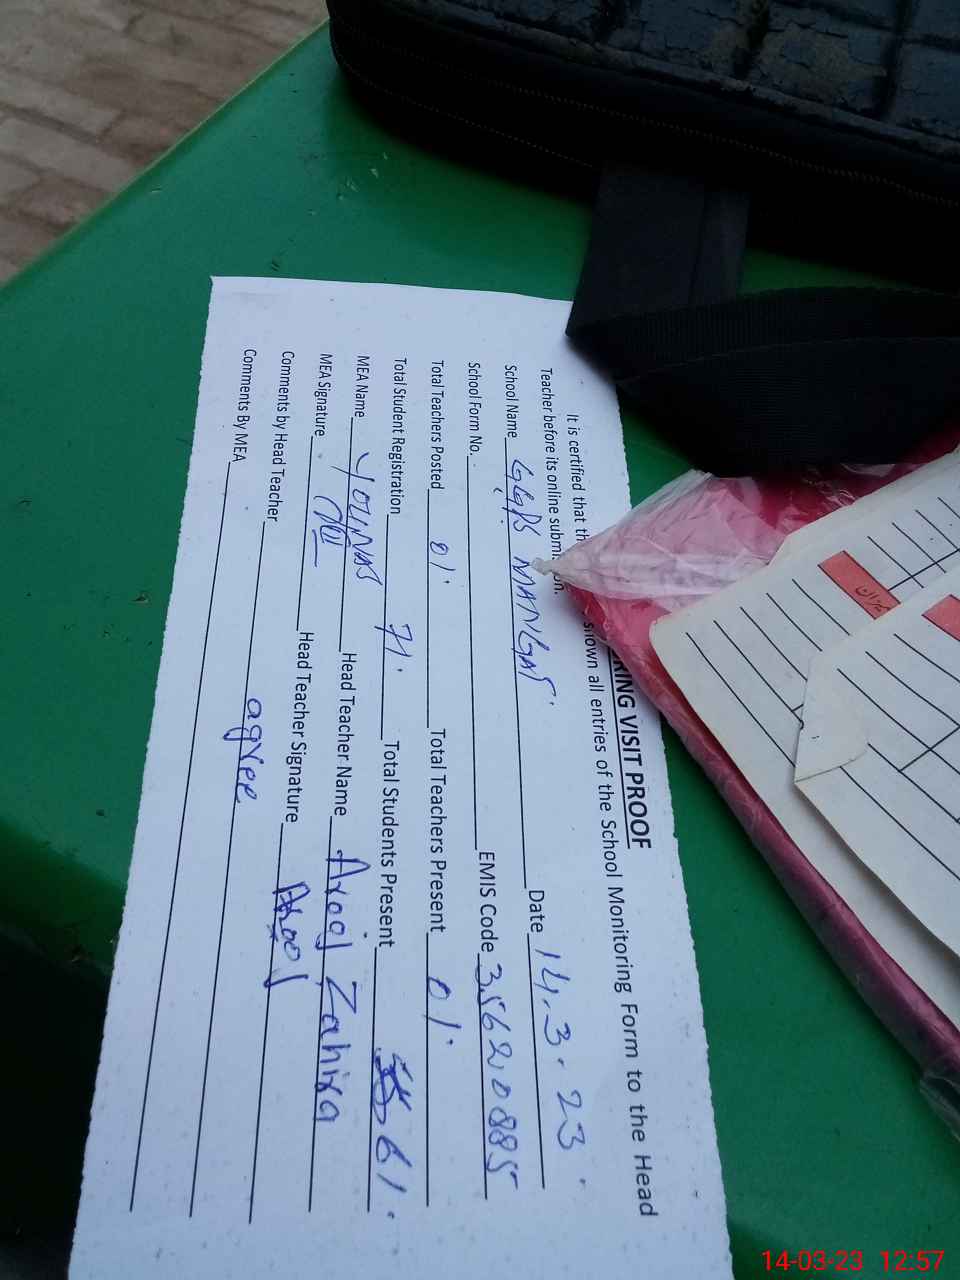 RING VISIT PROOF
It is certified that th shown all entries of the School Monitoring Form to the Head
Teacher before its online submi on.
School Name GGPS MANGAT Date 14.3.23
School Form No. EMIS Code 35620885
Total Teachers Posted 01 Total Teachers Present 01
Total Student Registration 71 Total Students Present 61
MEA Name YOUNAS Head Teacher Name Arooj Zahira
MEA Signature Head Teacher Signature Arooj
Comments by Head Teacher agree
Comments By MEA
میزان
14-03-23 12:57